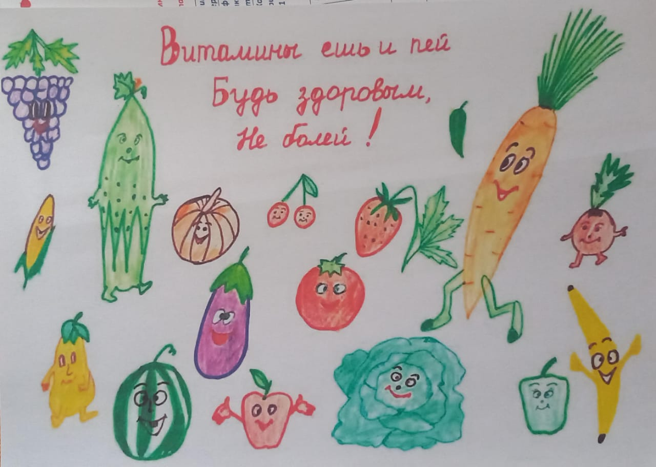 Витамины ешь и пей
Будь здоровым,
Не болей!